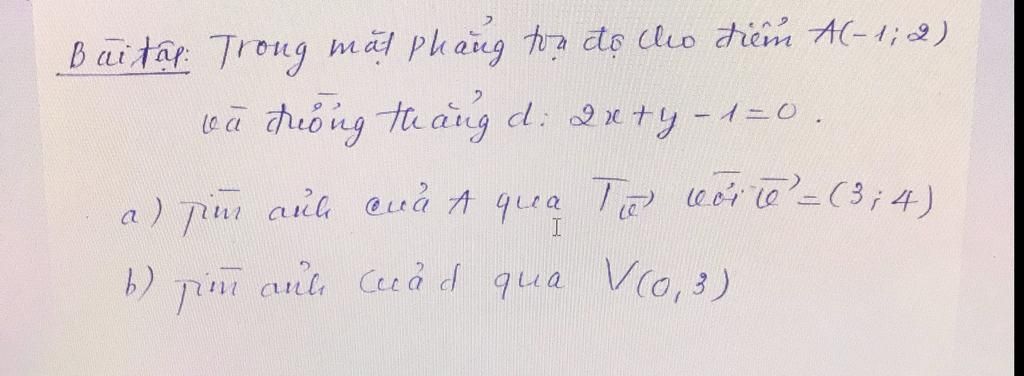 Bài tập: Trong mặt phẳng tọa độ cho điểm A(-1; 2)
và đường thẳng d: 2x + y - 1 = 0.
a) Tìm ảnh của A qua T_v⃗ với v⃗ = (3; 4)
b) Tìm ảnh của d qua V(O, 3)